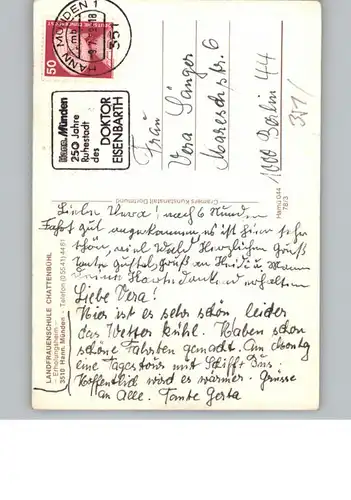 HANN. MÜNDEN 1
mb
18
351
50
Hann. Münden
250 Jahre
Ruhestadt
des DOKTOR
EISENBARTH
Frau
Vera Sänger
Maresch str. 6
1000 Berlin 44
351/
Cramers Kunstanstalt Dortmund
Hemü 044
78/3
LANDFRAUENSCHULE CHATTENBÜHL
– Erholungsheim –
3510 Hann. Münden · Telefon (05541) 4461
Liebe Vera! nach 6 Stunden
Fahrt gut angekommen, es ist hier sehr
schön, viel Wald Herzlichen Gruß
Tante Gustel, Gruß an Heidi u. Mann
meine Karte dankend erhalten
Liebe Vera!
Hier ist es sehr schön, leider
das Wetter kühl. Haben schon
schöne Fahrten gemacht. Am Montag
eine Tagestour mit Schiff + Bus.
Hoffentlich wird es wärmer. Grüsse
an Alle. Tante Gerta